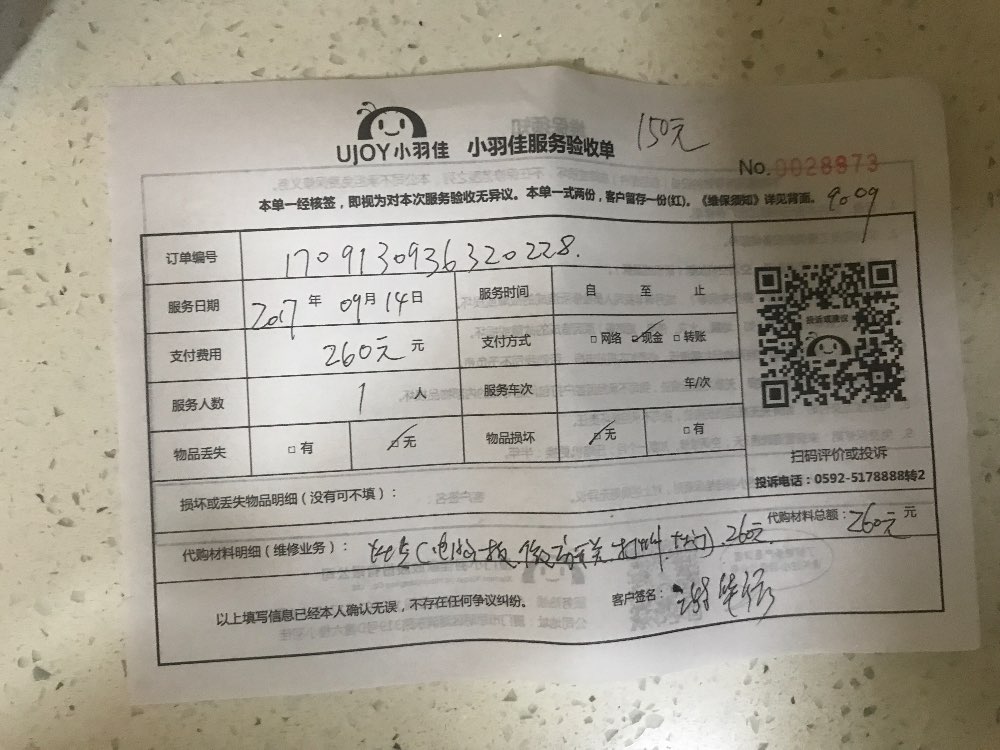 UJOY小羽佳 小羽佳服务验收单 150元
No.0028873
本单一经核签，即视为对本次服务验收无异议。本单一式两份，客户留存一份(红)。《维保须知》详见背面。
9009
订单编号 1709130936320228.
服务日期 2017年09月14日 服务时间 自 至 止
支付费用 260元 元 支付方式 □网络 ☑现金 □转账
服务人数 1 人 服务车次 车/次
物品丢失 □有 ☑无 物品损坏 ☑无 □有
投诉或建议
扫码评价或投诉
投诉电话：0592-5178888转2
损坏或丢失物品明细（没有可不填）：
代购材料明细（维修业务）： 260元 代购材料总额：260元 元
以上填写信息已经本人确认无误，不存在任何争议纠纷。 客户签名：